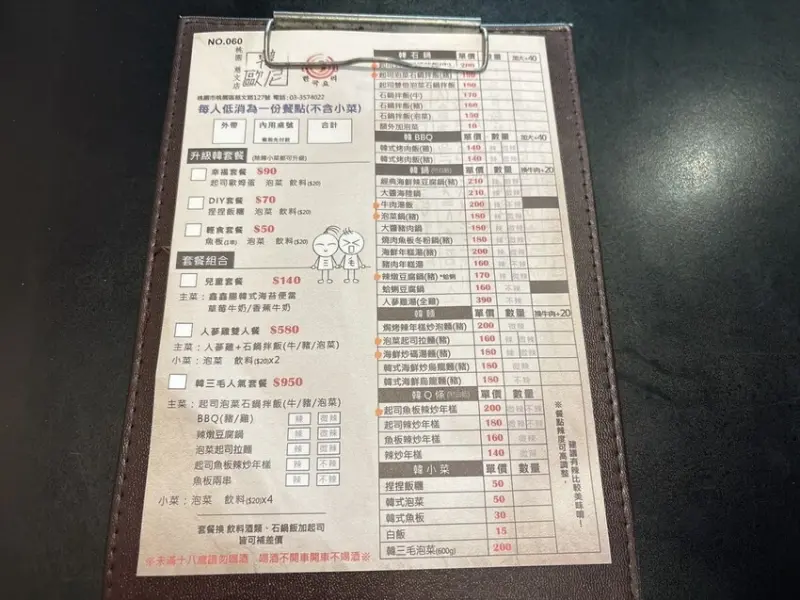 NO.060
桃園 慈文店
韓歐尼
桃園市桃園區慈文路127號 電話：03-3574022
每人低消為一份餐點(不含小菜)
外帶 內用桌號 合計
升級韓套餐
幸福套餐 $90
起司歐姆蛋 泡菜 飲料($20)
DIY套餐 $70
捏捏飯糰 泡菜 飲料($20)
輕食套餐 $50
魚板(1串) 泡菜 飲料($20)
套餐組合
兒童套餐 $140
主菜：鑫鑫腸韓式海苔便當
草莓牛奶/香蕉牛奶
人蔘雞雙人餐 $580
主菜：人蔘雞+石鍋拌飯(牛/豬/泡菜)
小菜：泡菜 飲料($20)X2
韓三毛人氣套餐 $950
主菜：起司泡菜石鍋拌飯(牛/豬/泡菜)
BBQ(豬/雞) 辣 微辣
辣燉豆腐鍋 辣 微辣
泡菜起司拉麵 辣 微辣
起司魚板辣炒年糕 辣 不辣
魚板兩串 辣 不辣
小菜：泡菜 飲料($20)X4
套餐換 飲料酒類、石鍋飯加起司
皆可補差價
※未滿十八歲請勿飲酒 喝酒不開車開車不喝酒※
三 毛
韓石鍋 單價 數量 加大+40
起司泡菜石鍋拌飯(豬) 190
起司雙倍泡菜石鍋拌飯 190
石鍋拌飯(牛) 170
石鍋拌飯(豬) 160
石鍋拌飯(泡菜) 150
額外加泡菜 15
韓BBQ 單價 數量 加大+40
韓式烤肉飯(豬) 140
韓式烤肉飯(雞) 140
韓鍋 單價 數量 換牛肉+20
經典海鮮辣豆腐鍋(豬) 210
大醬海陸鍋 210
牛肉湯飯 200
泡菜鍋(豬) 180
大醬豬肉鍋 180
燒肉魚板冬粉鍋(豬) 180
海鮮年糕湯(豬) 200
豬肉年糕湯 160
辣燉豆腐鍋(豬) *蛤蜊 170
蛤蜊豆腐鍋 160
人蔘雞湯(全雞) 390
韓麵 單價 數量 換牛肉+20
焗烤辣年糕炒泡麵(豬) 200
泡菜起司拉麵(豬) 160
海鮮炒碼湯麵(豬) 180
韓式海鮮炒烏龍麵(豬) 180
韓式海鮮烏龍麵(豬) 180
韓Q條 單價 數量
起司魚板辣炒年糕 200
起司辣炒年糕 180
魚板辣炒年糕 160
辣炒年糕 140
韓小菜 單價 數量
捏捏飯糰 50
韓式泡菜 50
韓式魚板 30
白飯 15
韓三毛泡菜(600g) 200
※餐點辣度可調整，
建議有辣比較美味唷～